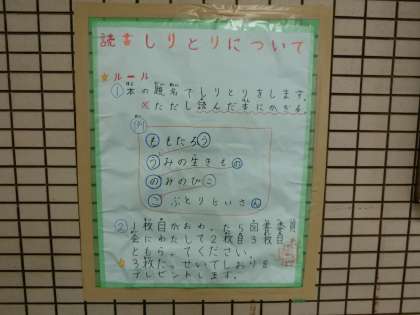 読書しりとりについて
★ルール
①本の題名でしりとりをします。
※ただし読んだ本にかぎる。
例
ももたろう
うみの生きもの
のみのぴこ
こぶとりじいさん
②1枚目がおわったら図書委員
会にわたして2枚目3枚目
ともらってください。
★3枚たっせいでしおりを
プレゼントします。